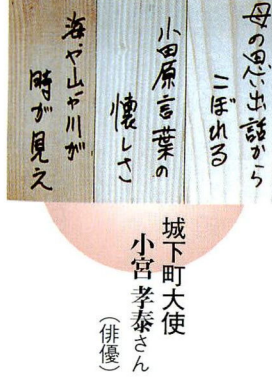 母の思い出話から
こぼれる
小田原言葉の
懐しさ
海や山や川が
時が見え
城下町大使
小宮孝泰さん
（俳優）